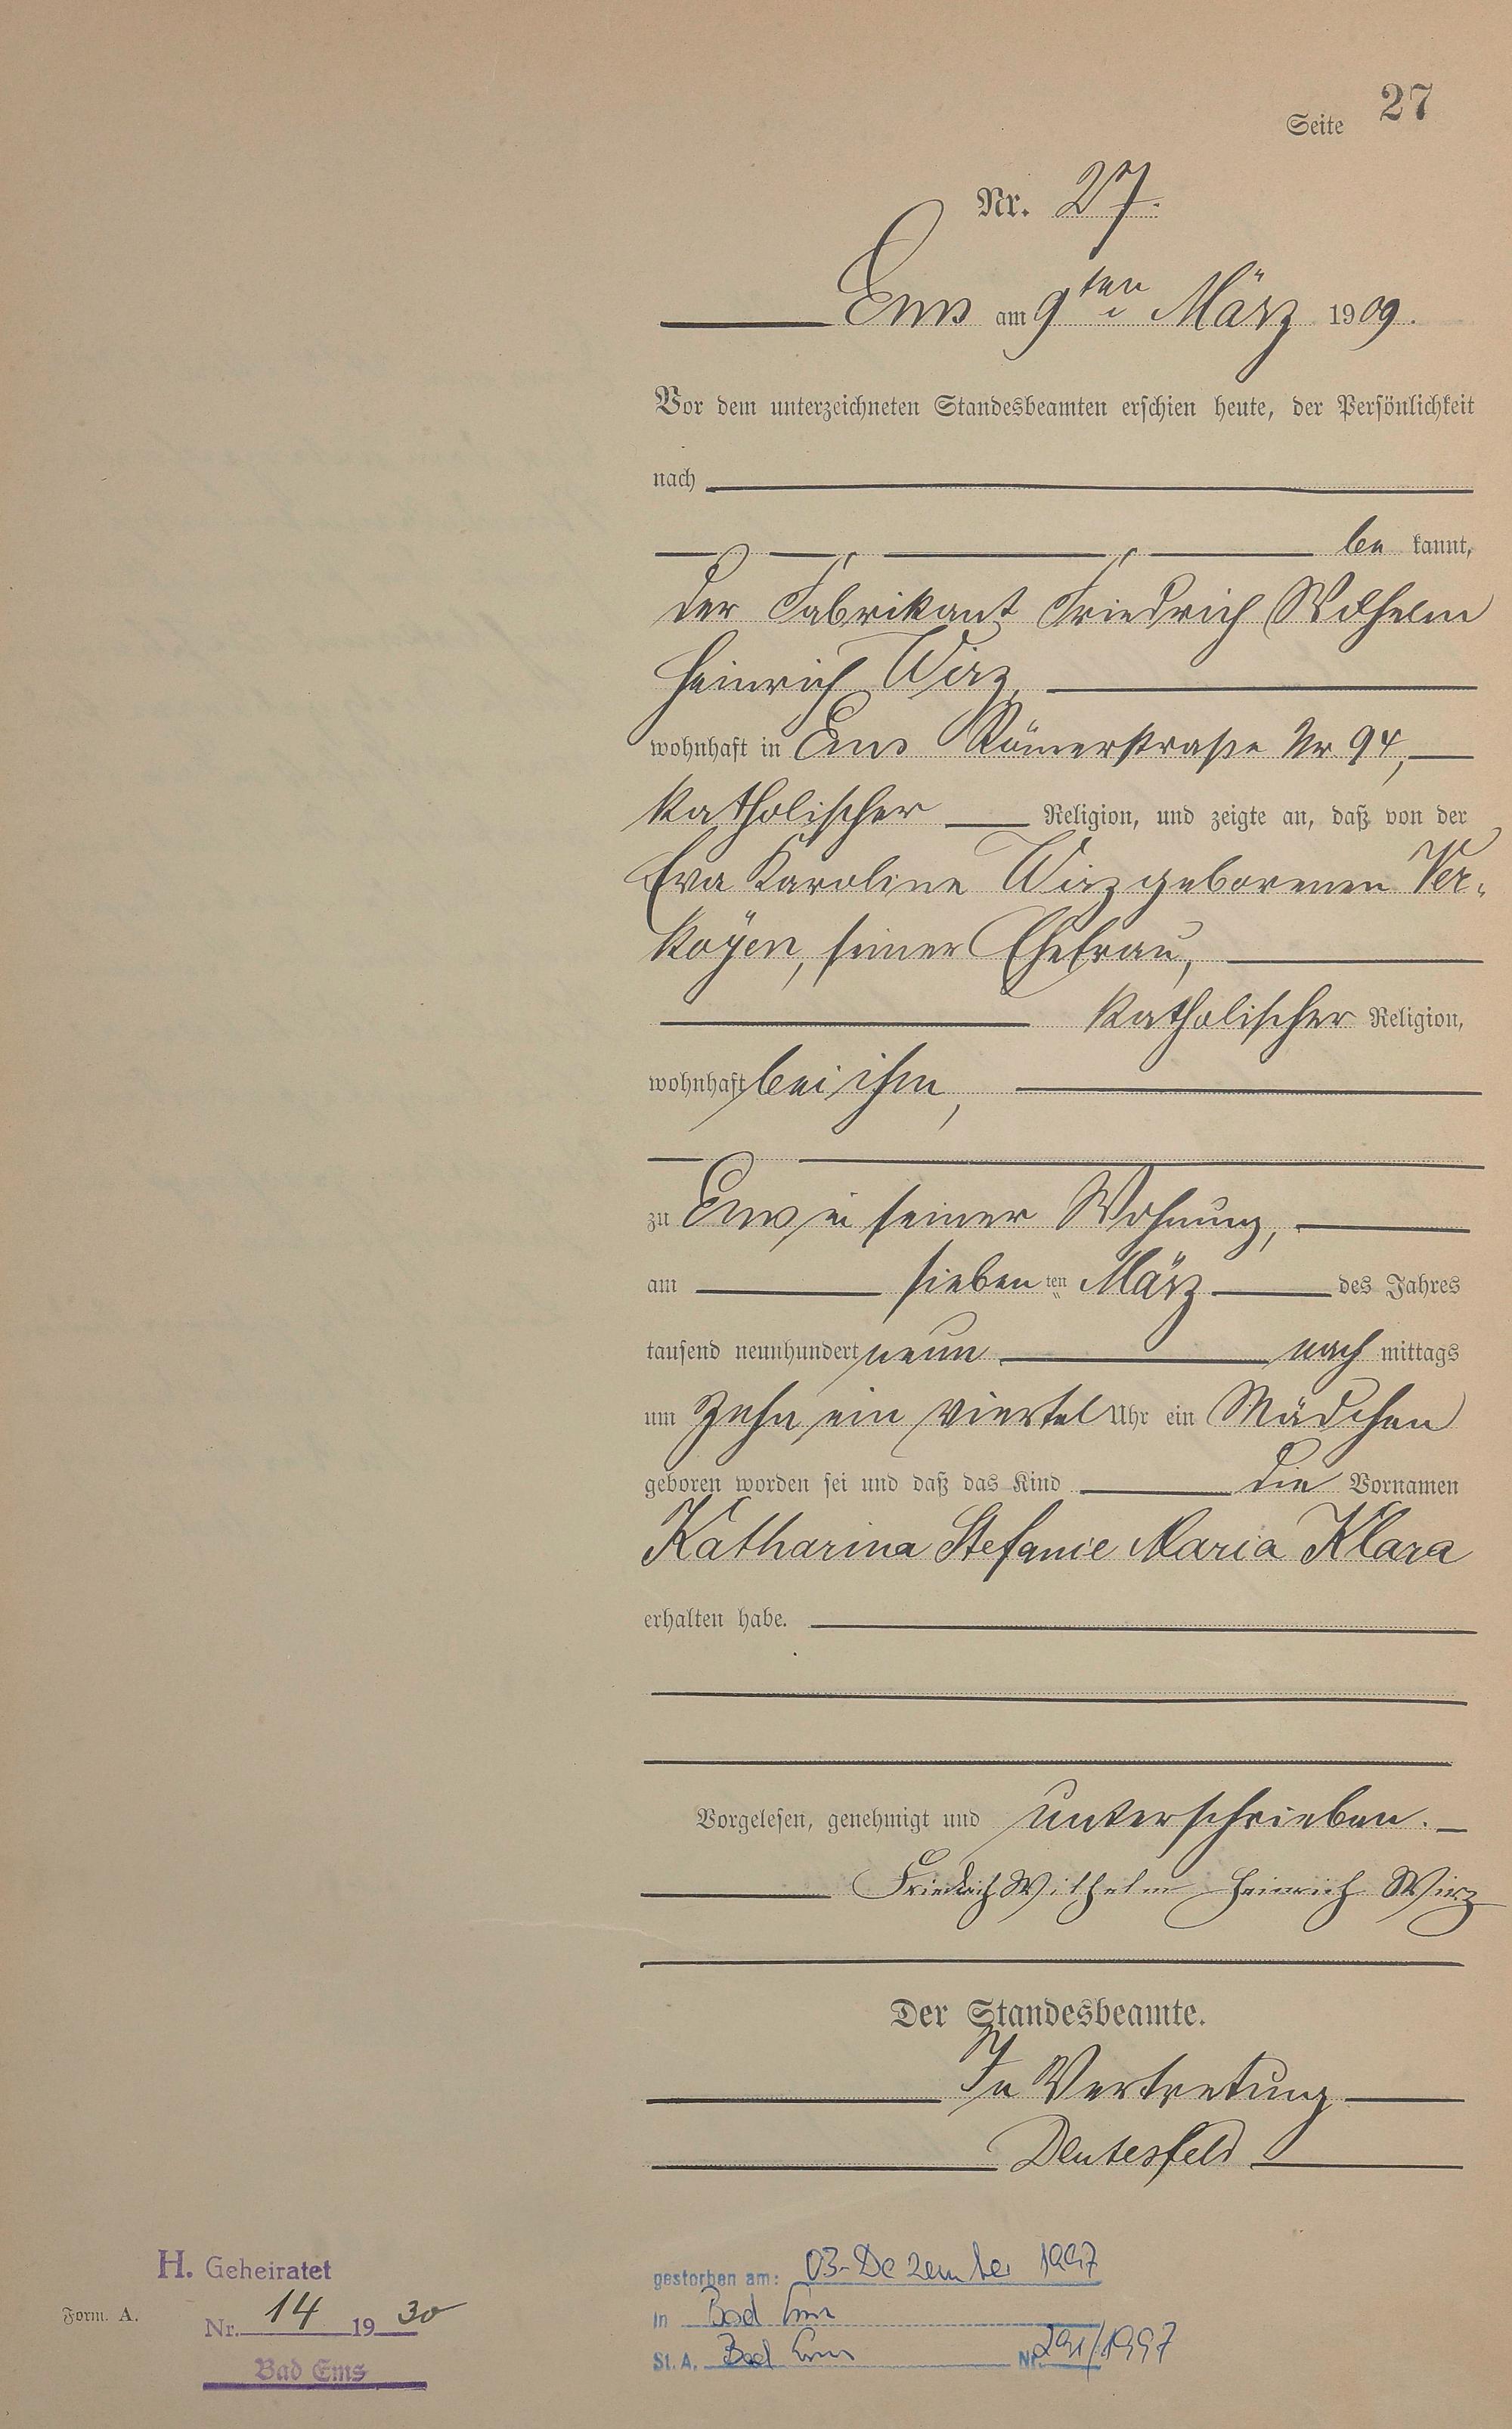 Seite 27
Nr. 27.
Ems am 9ten März 1909.
Vor dem unterzeichneten Standesbeamten erschien heute, der Persönlichkeit
nach
be kannt,
der Fabrikant Friedrich Wilhelm
Heinrich Wirz,
wohnhaft in Ems Römerstraße Nr 94,
katholischer Religion, und zeigte an, daß von der
Eva Karoline Wirz geborenen Ver-
koyen, seiner Ehefrau,
katholischer Religion,
wohnhaft bei ihm,
zu Ems in seiner Wohnung,
am siebenten März des Jahres
tausend neunhundert neun nach mittags
um zehn ein viertel Uhr ein Mädchen
geboren worden sei und daß das Kind die Vornamen
Katharina Stefanie Maria Klara
erhalten habe.
Vorgelesen, genehmigt und unterschrieben.
Friedrich Wilhelm Heinrich Wirz
Der Standesbeamte.
In Vertretung
H. Geheiratet
Nr. 14 1930
Bad Ems
Form. A.
gestorben am: 03. Dezember 1997
in Bad Ems
St. A. Bad Ems Nr. 291/1997